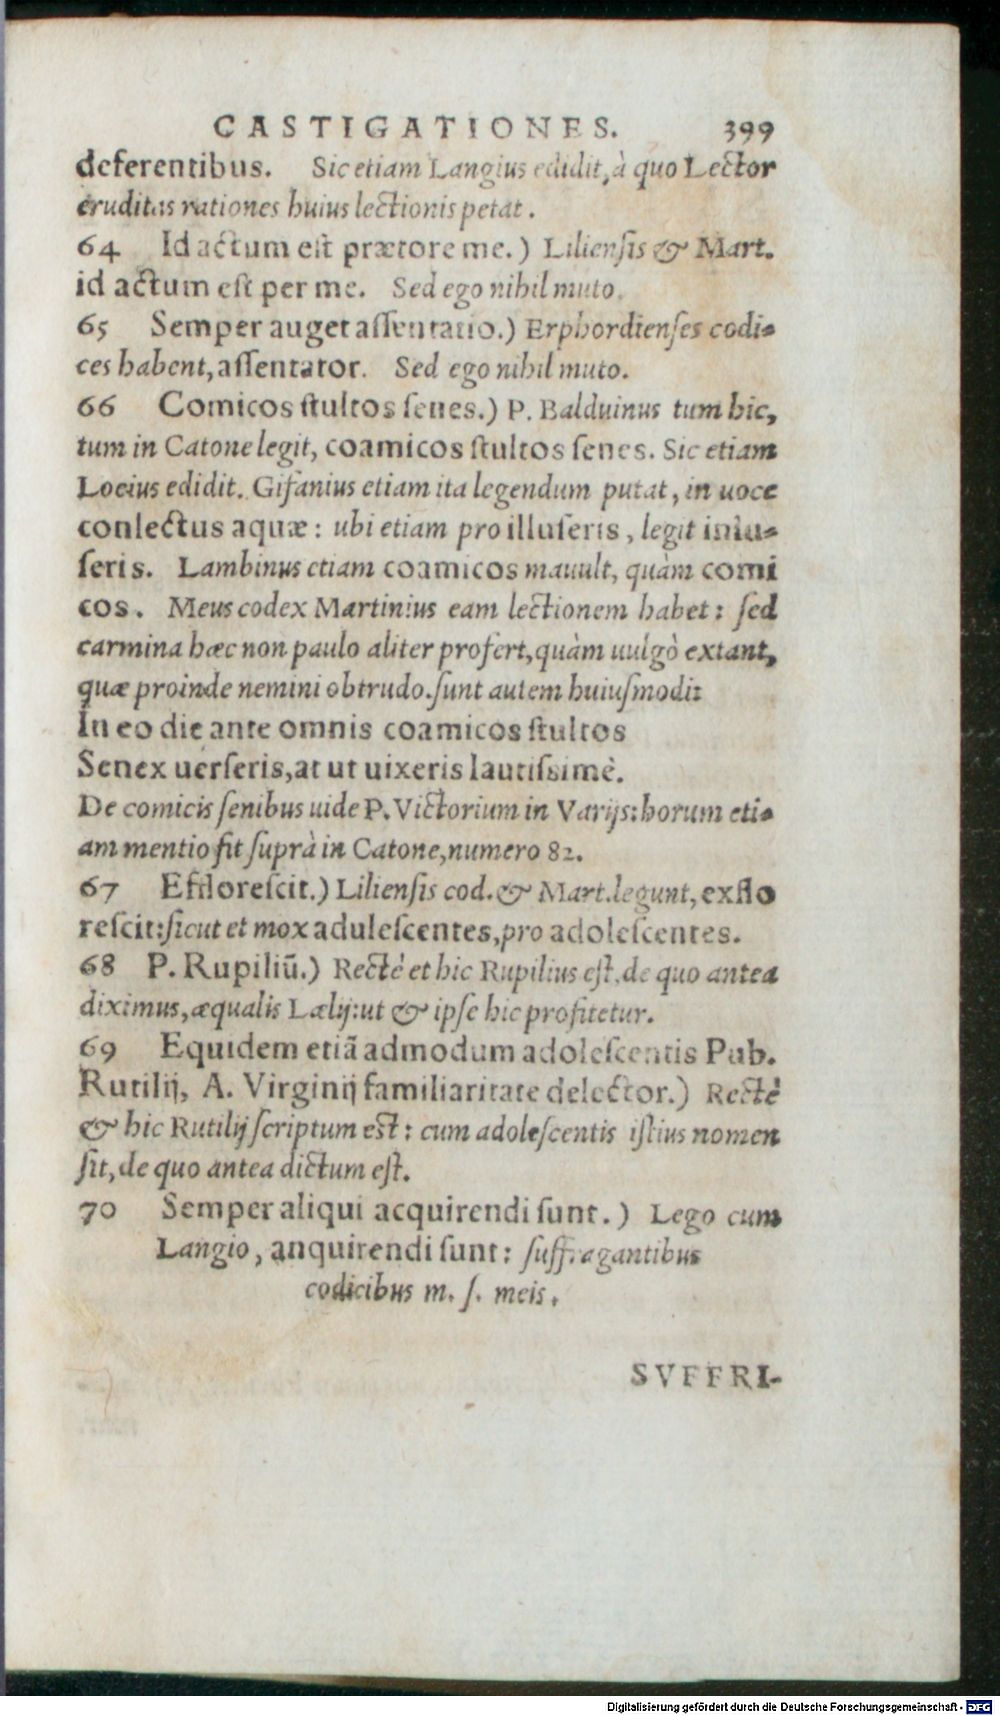 CASTIGATIONES. 399
deferentibus. Sic etiam Langius edidit, à quo Lector
eruditas rationes huius lectionis petat.
64 Id actum est prætore me.) Liliensis & Mart.
id actum est per me. Sed ego nihil muto.
65 Semper auget assentatio.) Erphordienses codi-
ces habent, assentator. Sed ego nihil muto.
66 Comicos stultos senes.) P. Balduinus tum hic,
tum in Catone legit, coamicos stultos senes. Sic etiam
Locius edidit. Gifanius etiam ita legendum putat, in uoce
conlectus aquæ: ubi etiam pro illuseris, legit inlu-
seris. Lambinus etiam coamicos mauult, quàm comi
cos. Meus codex Martinius eam lectionem habet: sed
carmina hæc non paulo aliter profert, quàm uulgò extant,
quæ proinde nemini obtrudo. sunt autem huiusmodi:
In eo die ante omnis coamicos stultos
Senex uerseris, at ut uixeris lautissimè.
De comicis senibus uide P. Victorium in Varijs: horum eti-
am mentio fit suprà in Catone, numero 82.
67 Efflorescit.) Liliensis cod. & Mart. legunt, exflo
rescit: sicut et mox adulescentes, pro adolescentes.
68 P. Rupiliū.) Rectè et hic Rupilius est, de quo antea
diximus, æqualis Lælij: ut & ipse hic profitetur.
69 Equidem etiā admodum adolescentis Pub.
Rutilij, A. Virginij familiaritate delector.) Rectè
& hic Rutilij scriptum est: cum adolescentis istius nomen
sit, de quo antea dictum est.
70 Semper aliqui acquirendi sunt.) Lego cum
Langio, anquirendi sunt: suffragantibus
codicibus m. s. meis.
SVFFRI-
Digitalisierung gefördert durch die Deutsche Forschungsgemeinschaft - DFG